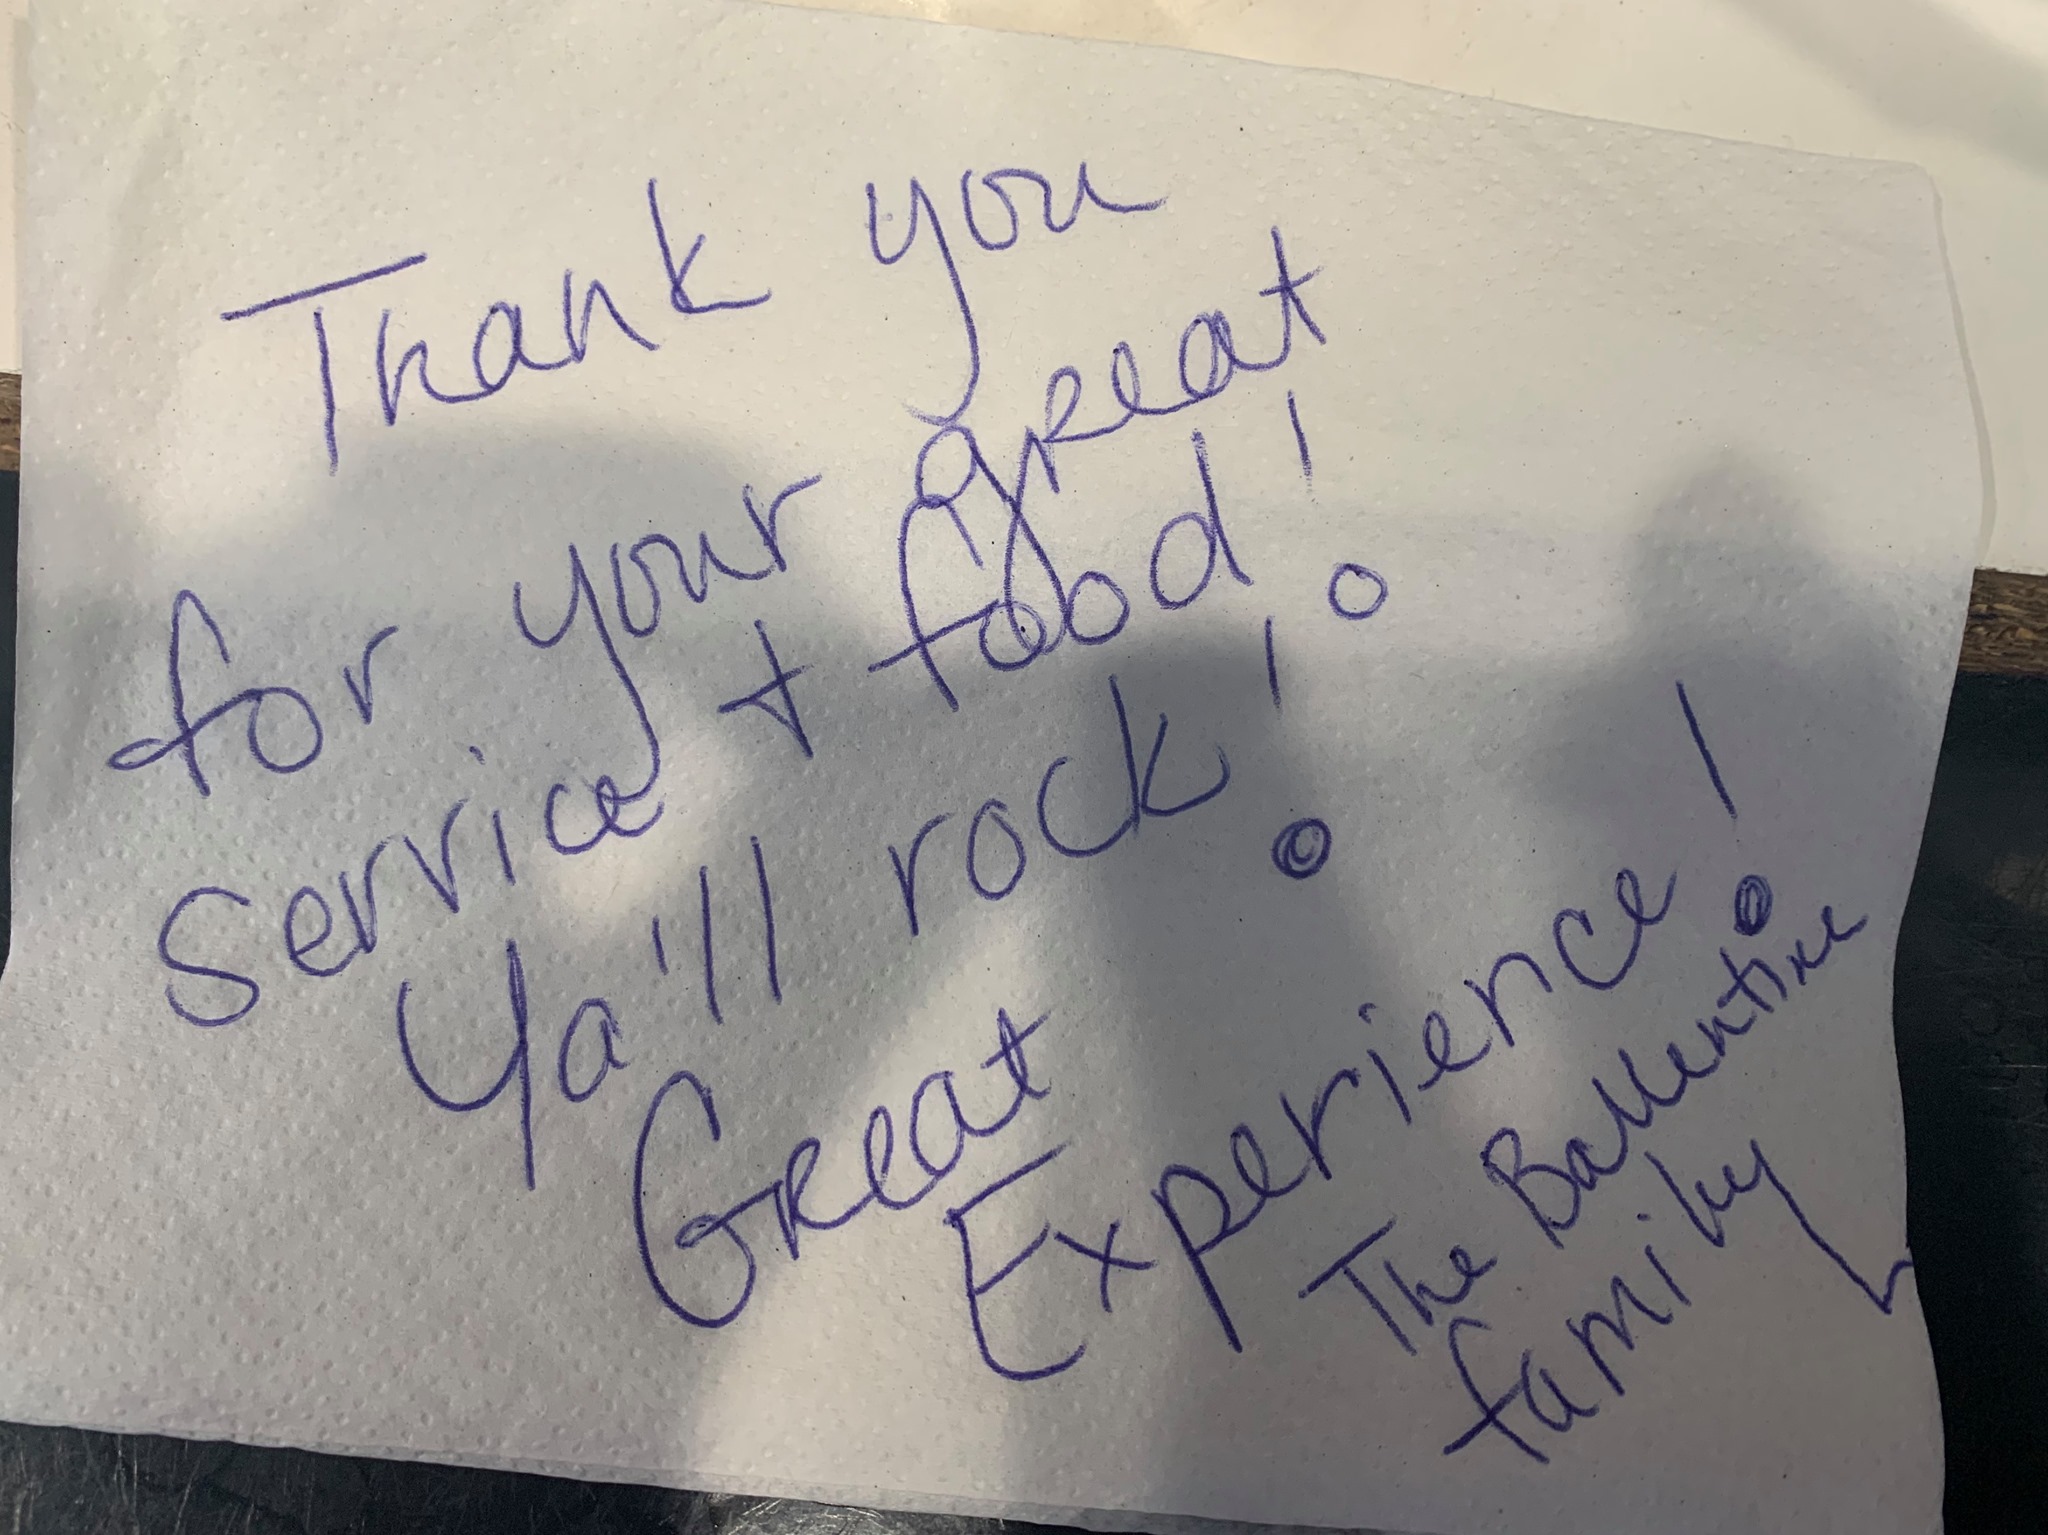 Thank you
for your great
service + food!
Ya'll rock!
Great
Experience!
The Ballentine
family